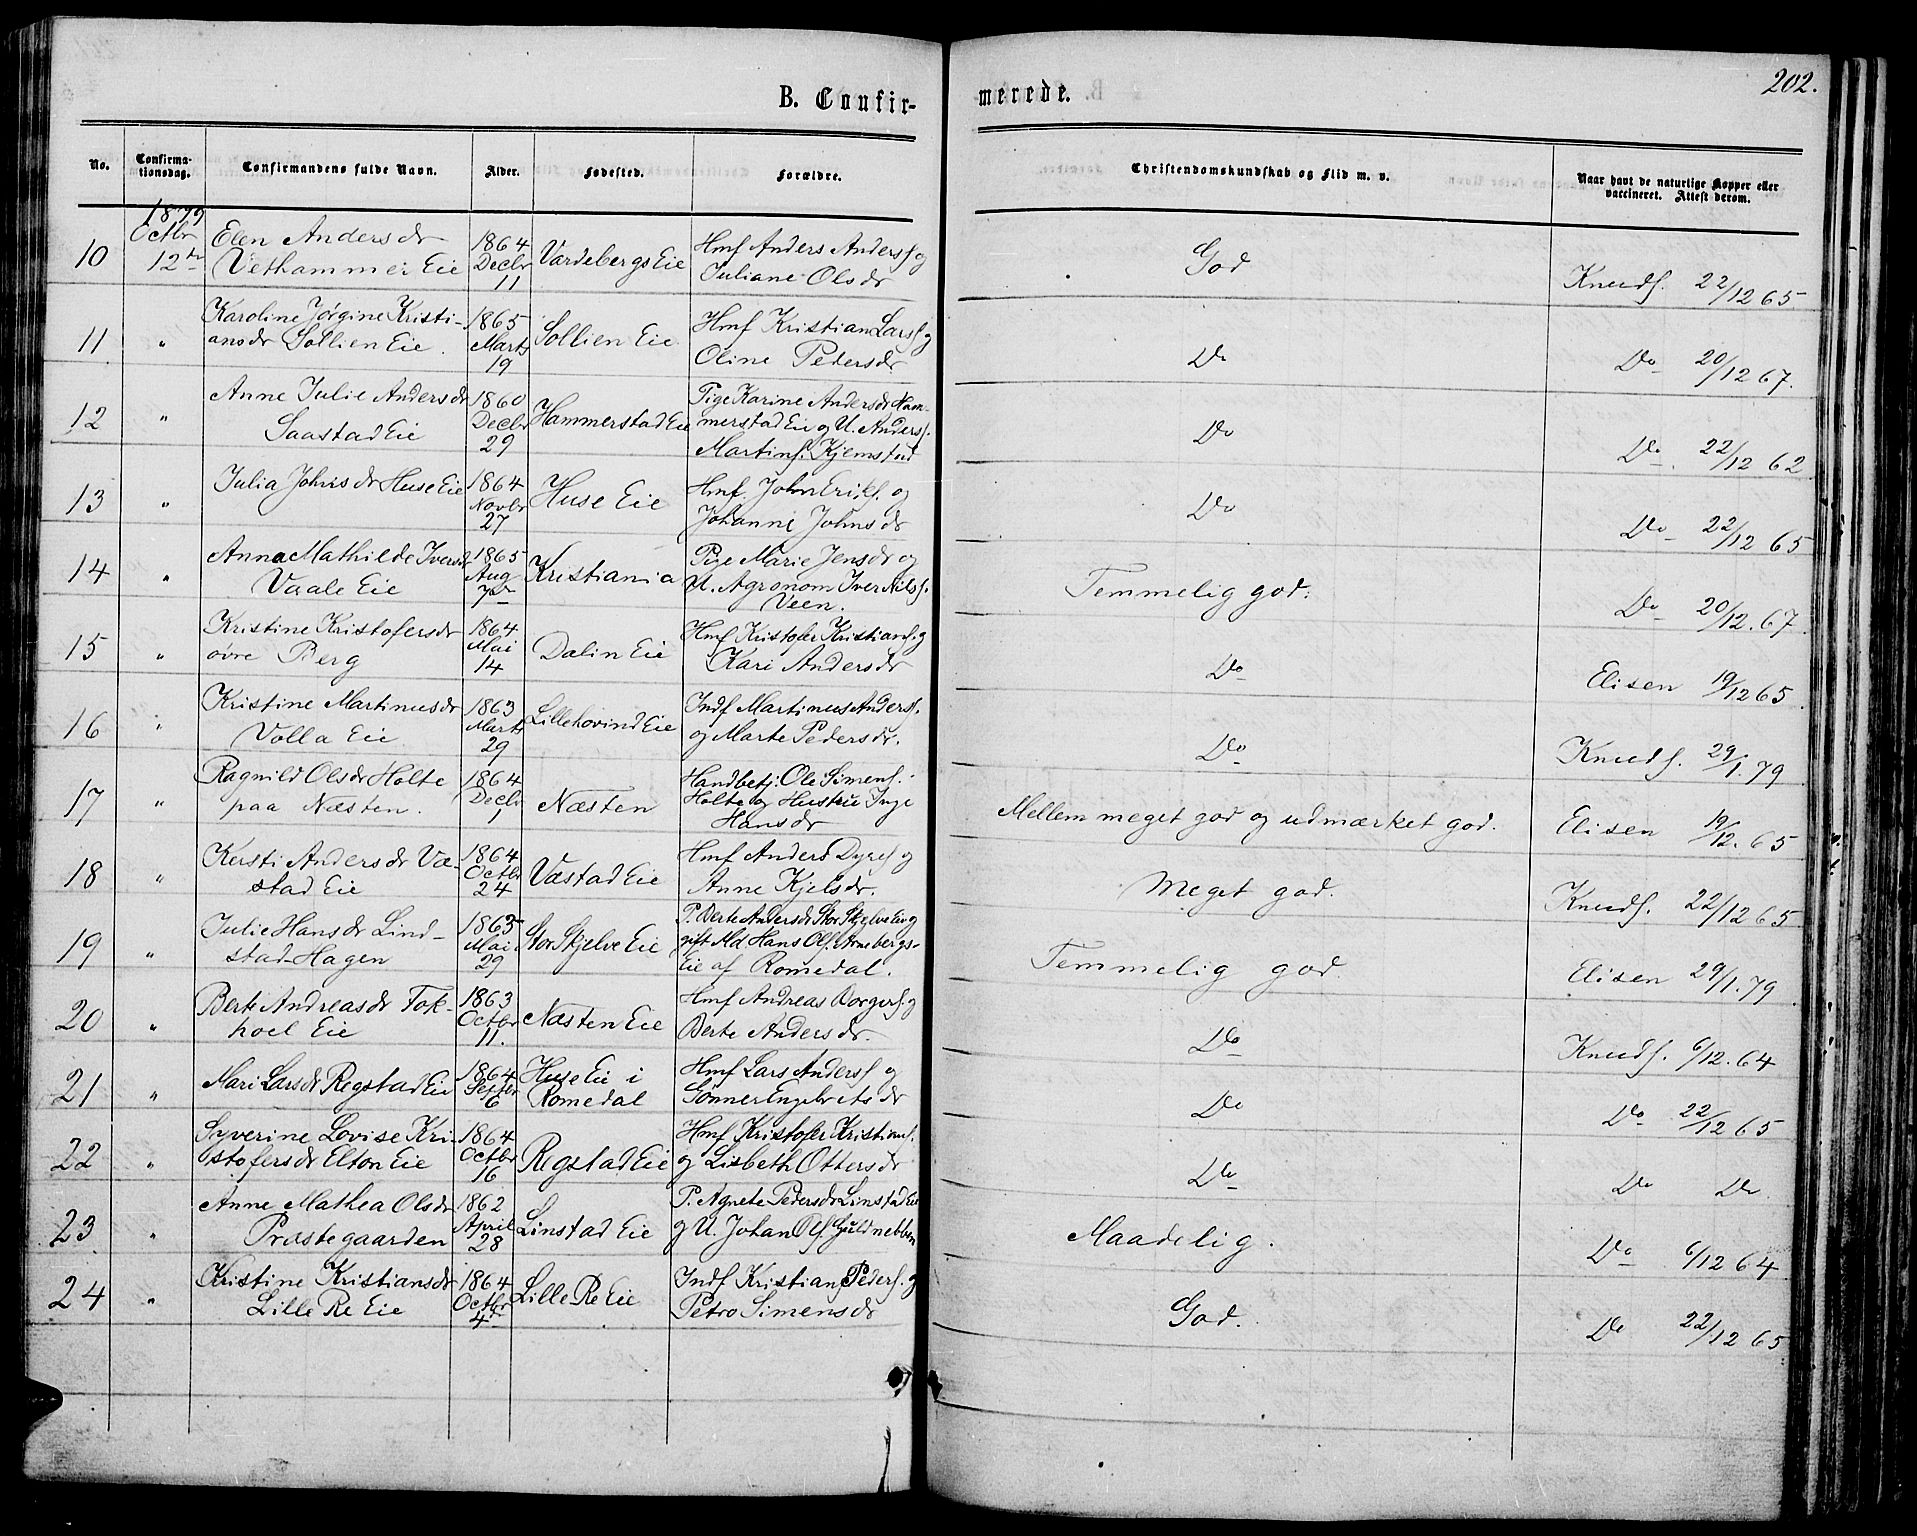 202.
B. Confir-
merede.
No.
Confirma-
tionsdag.
Confirmandens fulde Navn.
Alder.
Fødested.
Forældre.
Christendomskundskab og Flid m. v.
Naar havt de naturlige Kopper eller
vaccineret. Attest derom.
1879
10 Octbr 12te Elen Andersdr
Vethammer Eie
1864
Decbr
11
Vardebergs Eie
Hmf Anders Anders. og
Juliane Olsdr
God
Knuds. 22/12 65
11 " Karoline Jørgine Kristi-
ansdr Sollien Eie.
1865
Marts
19
Sollien Eie
Hmf Kristian Lars. og
Oline Pedersdr
Do
Do 20/12 67.
12 " Anne Julie Andersdr
Saastad Eie
1860
Decbr
29
Hammerstad Eie
Pige Karine Andersdr Ham-
merstad Eie og U. Anders.
Martins. Kjemstad
Do
Do 22/12 62
13 " Julia Johnsdr Huse Eie
1864
Novbr
27
Huse Eie
Hmf. John Eriks. og
Johanne Johnsdr
Do
Do 22/12 65
14 " Anna Mathilde Iversdr
Vaale Eie
1865
Aug
7de
Kristiania
Pige Marie Jensdr og
U. Agronom Iver Nils.
Veen.
Temmelig god.
Do 20/12. 67
15 " Kristine Kristofersdr
øvre Berg
1864
Mai
14
Dælin Eie
Hmf Kristofer Kristians. og
Kari Andersdr
Do
Elisen 19/12 65
16 " Kristine Martinusdr
Volla Eie
1863
Marts
29
Lillehovind Eie
Indf Martinus Anders.
og Marte Pedersdr.
Do
Knuds. 29/1. 79
17 " Ragnild Olsdr Holte
paa Næsten.
1864
Decbr
1
Næsten
Handbetj. Ole Simens.
Holte og Hustru Inge
Hansdr
Mellem meget god og udmærket god.
Elisen 19/12. 65
18 " Kersti Andersdr Væ-
stad Eie
1864
Octbr
24
Væstad Eie
Hmf Anders Dyres. og
Anne Kjelsdr.
Meget god.
Knuds. 22/12 65
19 " Julie Hansdr Lind-
stad-Hagen
Mai
29
Stor Skjelve Eie
P. Berte Andersdr Stor Skjelve Eie og
gift Md Hans Ols. Arnebergs-
Eie af Romedal.
Temmelig god.
Elisen 29/1. 79
20 " Berte Andreasdr Fok-
hoel Eie
1863
Octbr
11.
Næsten Eie
Hmf Andreas Borgers. og
Berte Andersdr.
Do
Knuds. 6/12. 64
21 " Mari Larsdr Regstad Eie
1864
Septbr
6
Huse Eie i
Romedal
Hmf Lars Anders. og
Sønner Engebretsdr
Do
Do 22/12 65
22 " Syverine Lovise Kri-
stofersdr Elton Eie
1864
Octbr
16
Regstad Eie
Hmf Kristofer Kristians.
og Lisbeth Ottersdr
Do
Do Do
23 " Anne Mathea Olsdr
Præstegaarden
1862
April
28
Linstad Eie
P. Agnete Pedersdr Linstad Eie
og U. Johan Ols. Guldnebben
Maadelig.
Do 6/12 64
24 " Kristine Kristiansdr
Lille Re Eie
1864
Octbr
4de
Lille Re Eie
Indf Kristian Peders. og
Petro Simensdr
God.
Do 22/12 65